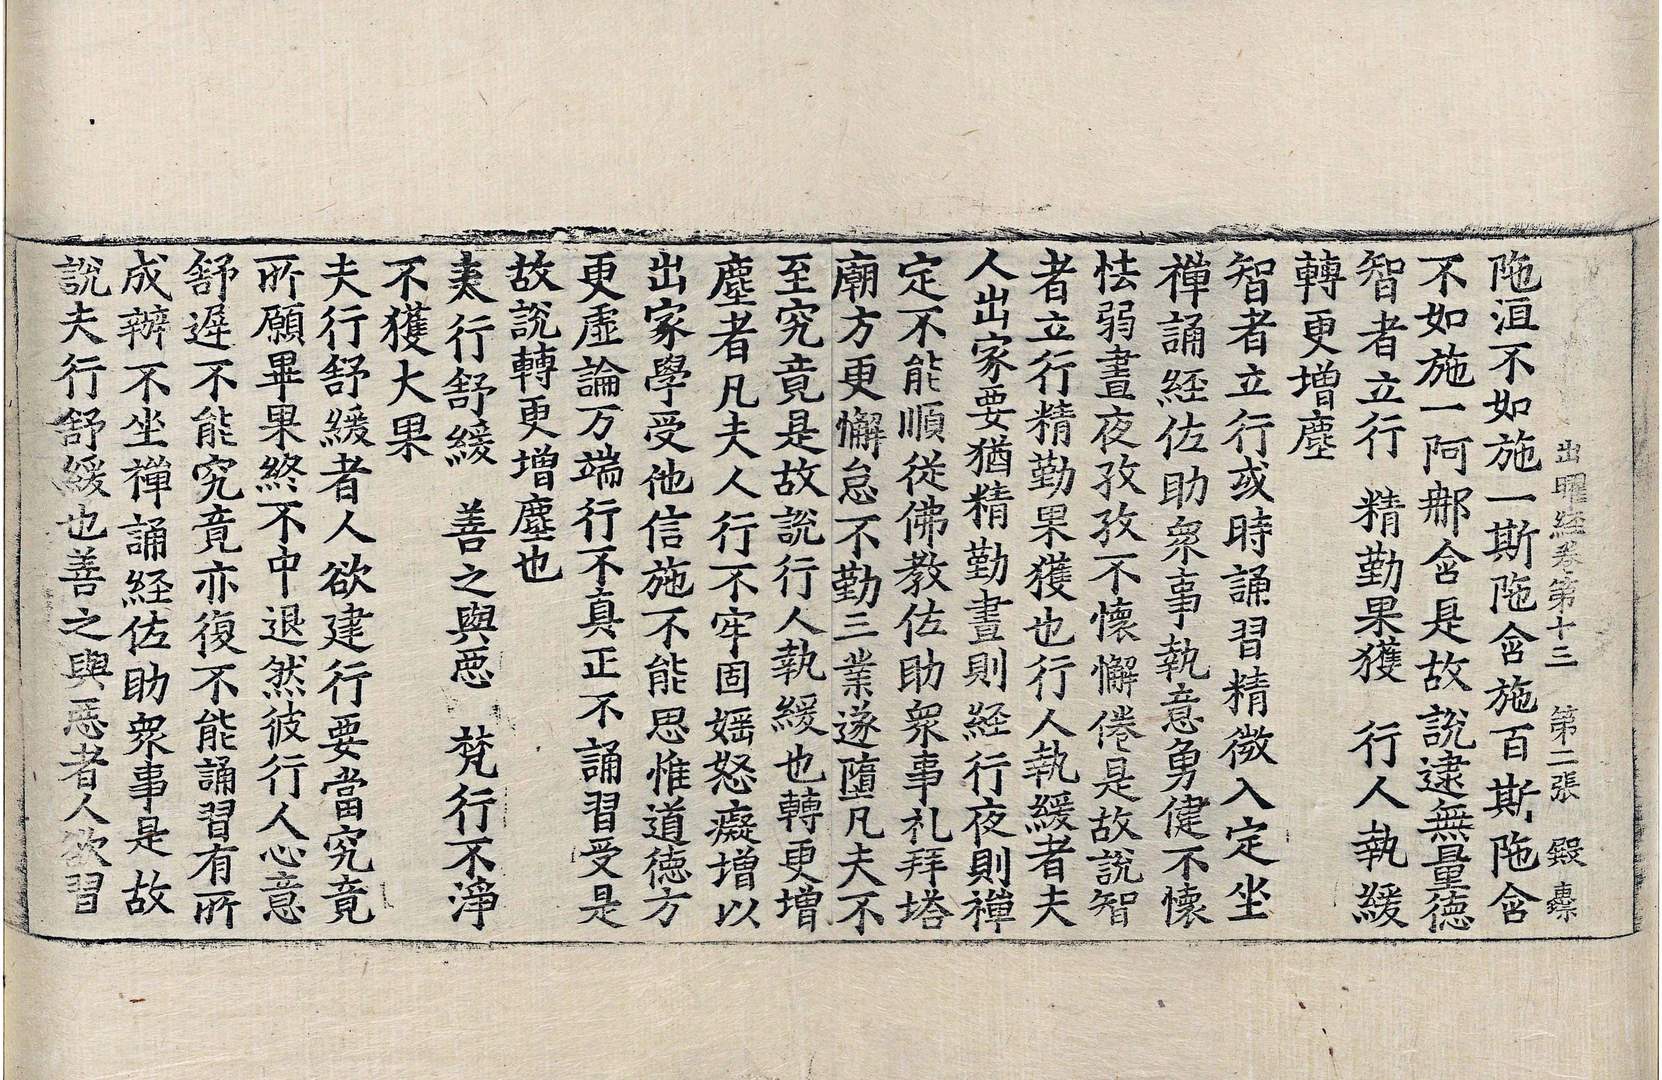 出曜経卷第十三　第二張　殿
陁洹不如施一斯陁含施百斯陁含
不如施一阿那含是故說逮無量德
智者立行　精勤果獲　行人執緩
轉更增塵
智者立行或時誦習精微入定坐
禪誦経佐助衆事執意勇健不懷
怯弱晝夜孜孜不懷懈倦是故說智
者立行精勤果獲也行人執緩者夫
人出家要猶精勤晝則経行夜則禪
定不能順從佛教佐助衆事礼拜塔
廟方更懈怠不勤三業遂墮凡夫不
至究竟是故說行人執緩也轉更增
塵者凡夫人行不牢固婬怒癡增以
出家學受他信施不能思惟道德方
更虛論万端行不真正不誦習受是
故說轉更增塵也
夫行舒緩　善之與惡　梵行不淨
不獲大果
夫行舒緩者人欲建行要當究竟
所願畢果終不中退然彼行人心意
舒遲不能究竟亦復不能誦習有所
成辦不坐禪誦経佐助衆事是故
說夫行舒緩也善之與惡者人欲習